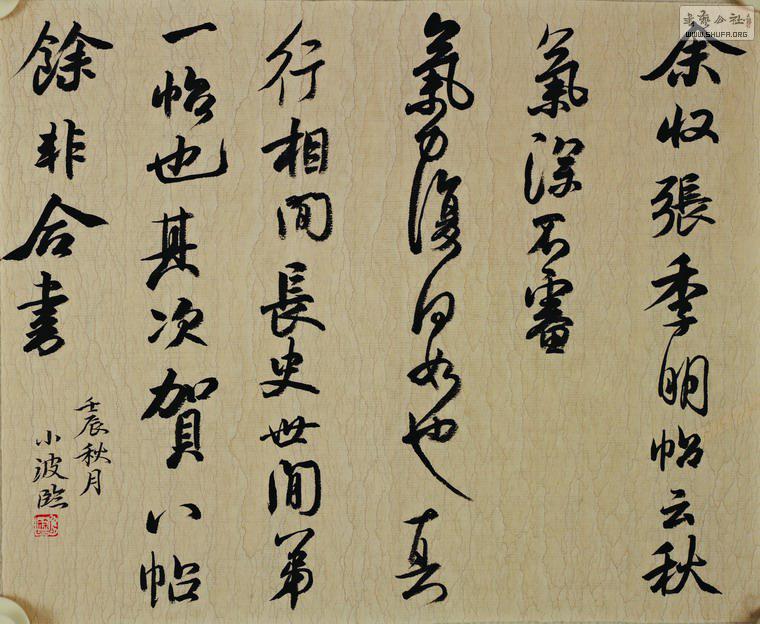 余收張季明帖云秋
氣深不審
氣力復何如也真
行相間長史世間第
一帖也其次賀八帖
餘非合書
壬辰秋月
小波臨
書藝公社
WWW.SHUFA.ORG